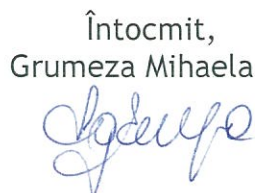 Întocmit,
Grumeza Mihaela